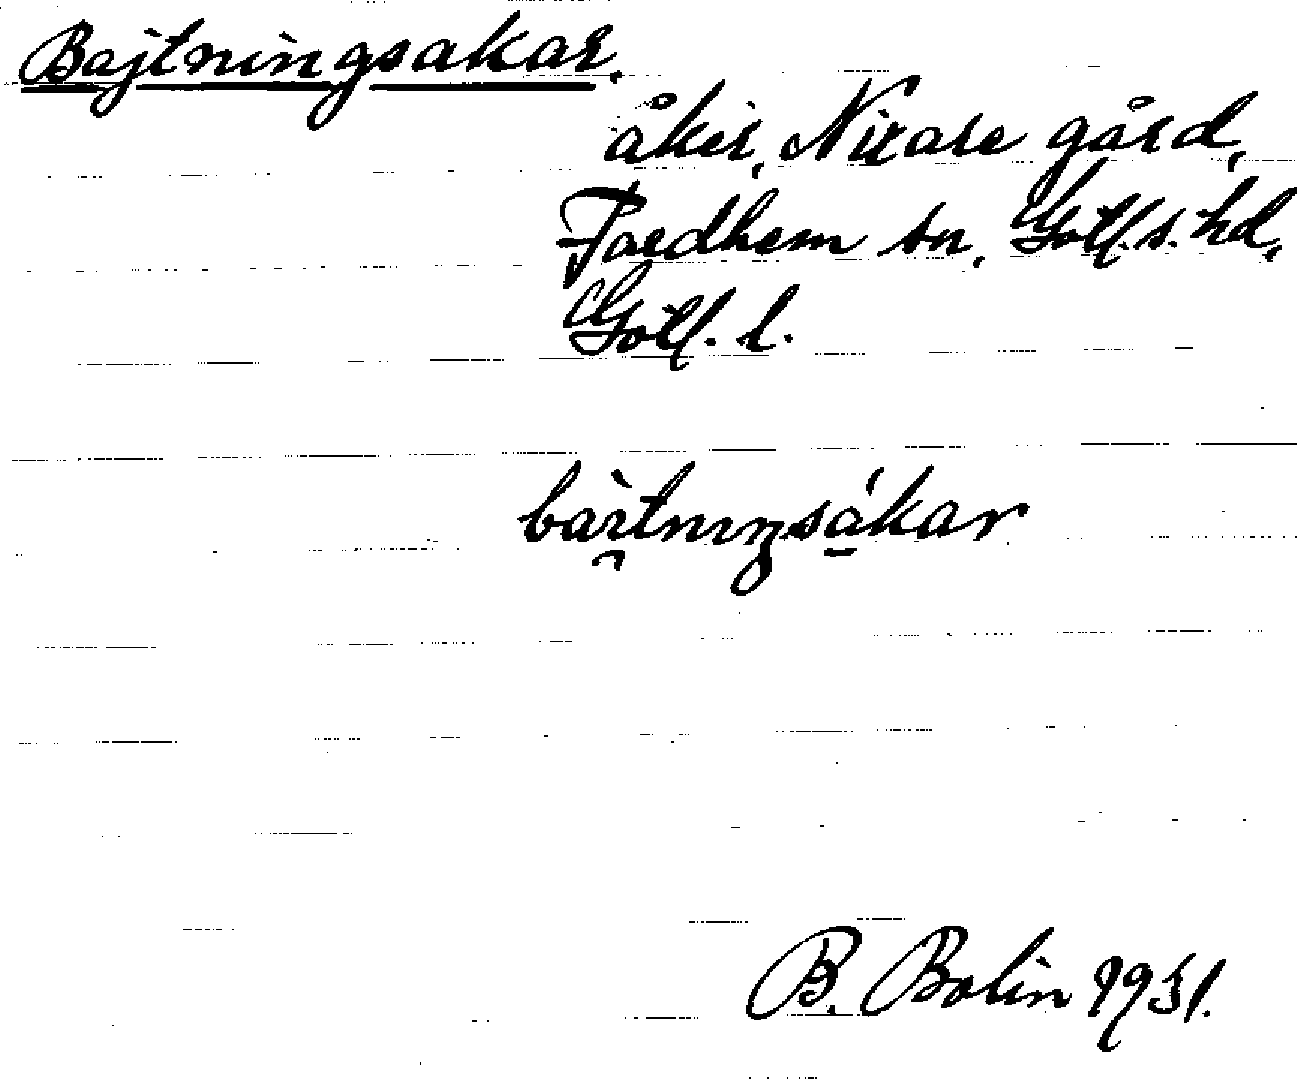 Bajtningsakar.
åker, Nixare gård,
Fardhem sn, Gotl. s. hd,
Gotl. l.
bài̯tnıŋsákar
B. Bolin 1931.